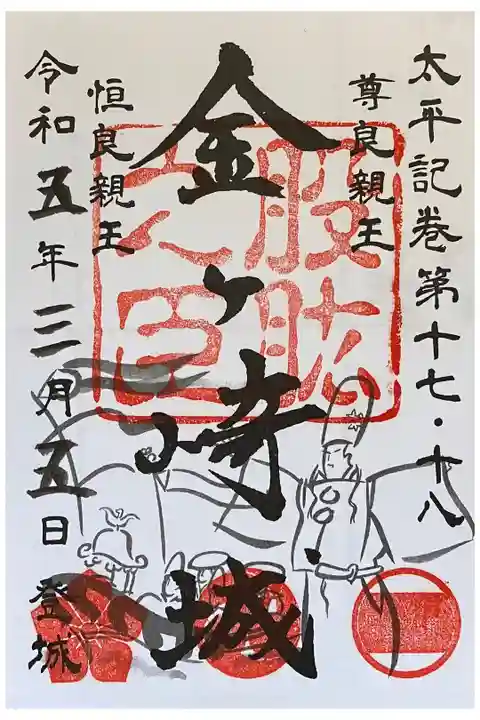 太平記巻第十七・十八
尊良親王
金ヶ崎城
恒良親王
令和五年三月五日
登城
股肱之臣